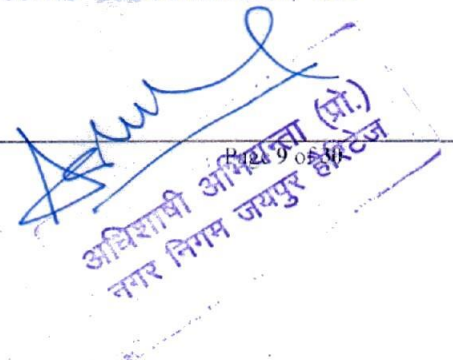 Page 9 of 30
अधिशाषी अभियन्ता (प्रो.)
नगर निगम जयपुर हैरिटेज